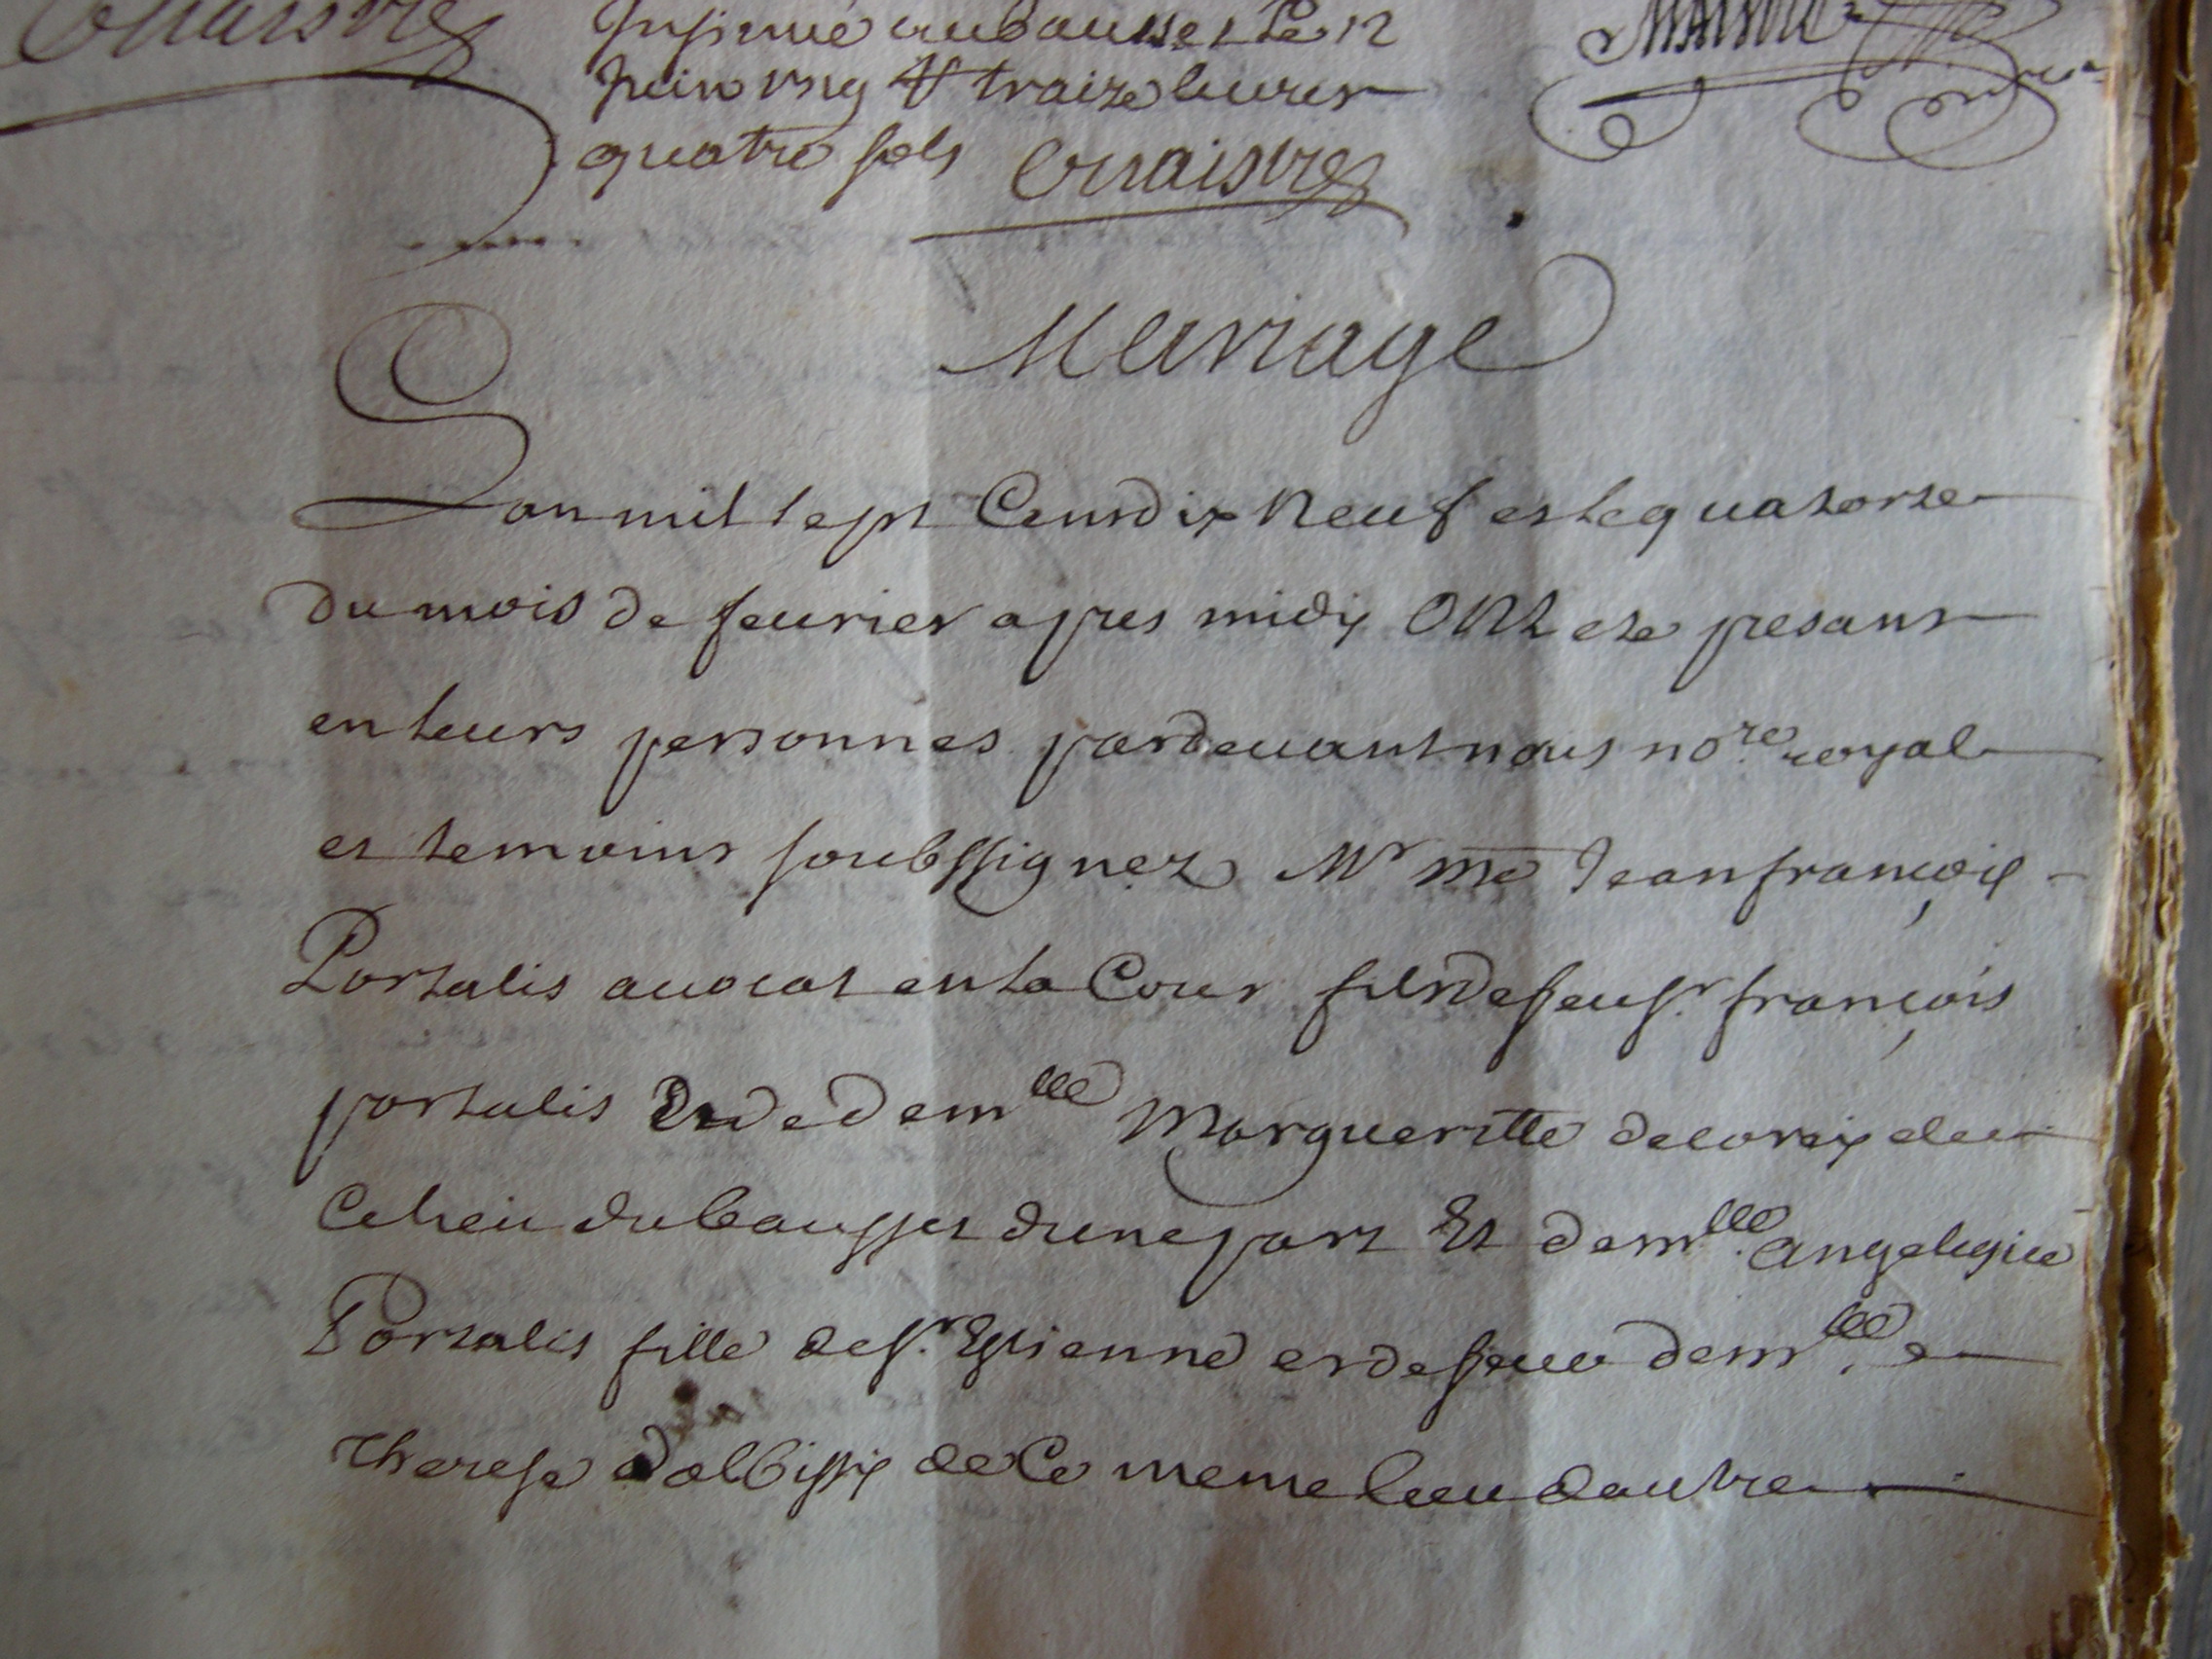 Insinué au bausset le 12
Juin 1719 # traize livres
quatre sols
Mariage
Lan mil sept Cens dix Neuf et le quatorze
du mois de feurier apres midy ONt este presans
en leurs personnes pardeuant nous no.re royal
et temoins soubssignez Mr me Jean françois
Portalis auocat en la Cour fils de feu sr. françois
portalis Et de demlle Margueritte decoreis de
Ce lieu du bausset dune part Et demlle. angelique
Portalis fille de sr. Estienne et de feue demlle. e
therese dalbissy de Ce meme lieu dautre